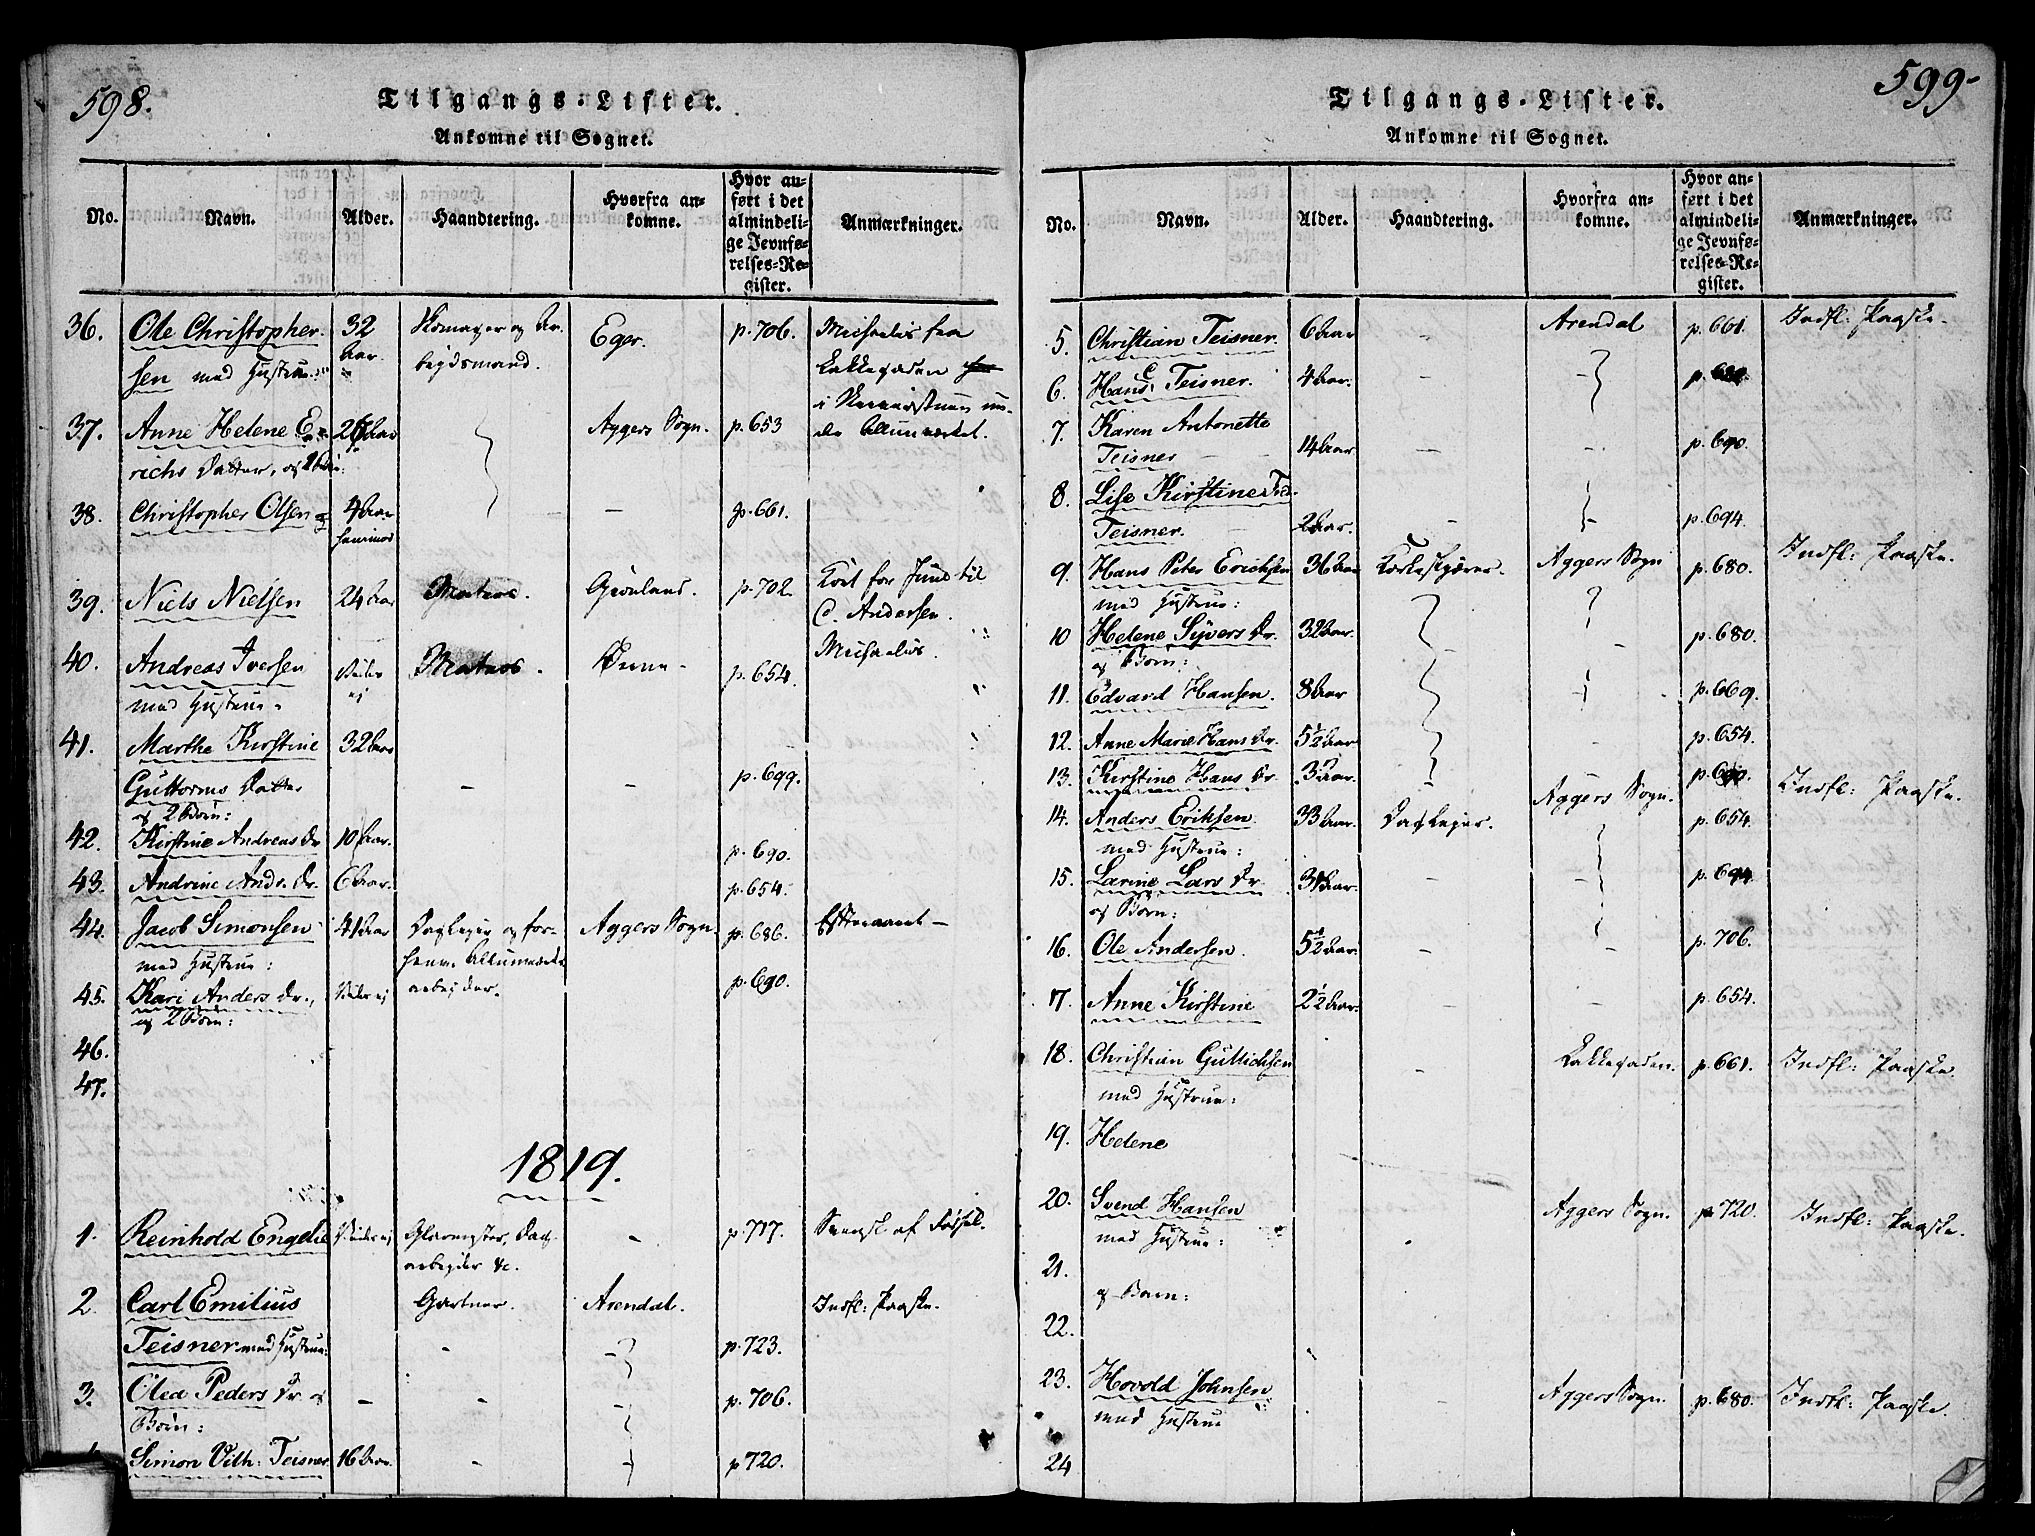 598.
Tilgangs-Lister.
Ankomne til Sognet.
No. Navn. Alder. Haandtering. Hvorfra ankomne. Hvor anført i det almindelige Jevnførelses-Register. Anmærkninger.
36. Ole Christopher- 32 Eger. p. 706. Michaelis fra
sen med Hustrue: Aar. beydsmand. Lakkegaden
37. Anne Helene E- Aar Aggers Sogn. p. 653
richs Datter, og Allunværket.
38. Christopher Olsen 4 Aar — p. 661.
39. Niels Nielsen 24 Aar Matros. Grønland. p. 702. Kort for Juul til
C. Andersen.
40. Andreas Iversen Veides Matros. p. 654. Michaelis.
med Hustrue. ej
41. Marthe Kirstine 32 Aar
Guttorms Datter — — p. 699.
og 2 Børn:
42. Kirstine Andreas Dr. 10 Aar. p. 690.
43. Andrine Andr. Dr. 6 Aar. p. 654.
44. Jacob Simonsen 41 Aar Daglejer og for- Aggers Sogn. p. 686. Efteraaret —
med Hustrue: Allunværks
45. Kari Anders Dr., Veides ej arbejder. p. 690.
og 2 Børn:
46.
47.
1819.
1. Reinhold Engelie Veides ej Glarmester, Dag- — p. 717. Svensk af Fødsel.
arbejder &c.
2. Carl Emilius Gartner. Arendal. Indfl: Paaske.
Teisner med Hustrue: - — p. 723.
3. Olea Peders Dr. og — - — p. 706.
Børn:
Simon Vilh: Teisner 16 Aar. - — p 720.
599
Tilgangs-Lister.
Ankomne til Sognet.
No. Navn. Alder. Haandtering. Hvorfra ankomne. Hvor anført i det almindelige Jevnførelses-Register. Anmærkninger.
5. Christian Teisner. 6 Aar - Arendal p. 661. Indfl: Paaske.
6. Hans C Teisner. 4 Aar. - —
7. Karen Antonette
Teisner 14 Aar — — p. 690.
8. Lise Kirstine
Teisner. 2 Aar. - — p. 694.
9. Hans Peter Erichsen 36 Aar Aggers Sogn p. 680. Indfl: Paaske.
med Hustrue:
10 Helene Syvers Dr. 32 Aar. - p. 680.
og Børn:
11. Edvard Hansen. 8 Aar — p. 669.
12. Anne Marie Hans Dr. 5½ Aar — p. 654.
13. Kirstine Hans Dr. 3 Aar. —
14. Anders Eriksen 33 Aar. Daglejer. Aggers Sogn. p. 654. Indfl: Paaske.
med Hustrue:
15. Larine Lars Dr. 31 Aar. — — p. 694.
og Børn:
16. Ole Andersen. 5½ Aar. - — p. 706.
17. Anne Kirstine 2½ Aar. — — p. 654.
18. Christian Gullichsen - Lakkegaden. p. 661. Indfl: Paaske.
med Hustrue:
19. Helene
20. Svend Hansen Aggers Sogn. p 720. Indfl: Paaske.
med Hustrue:
21.
og Barn:
22.
23. Hovold Johnsen - Aggers Sogn. p. 680. Indfl: Paaske.
med Hustrue
24